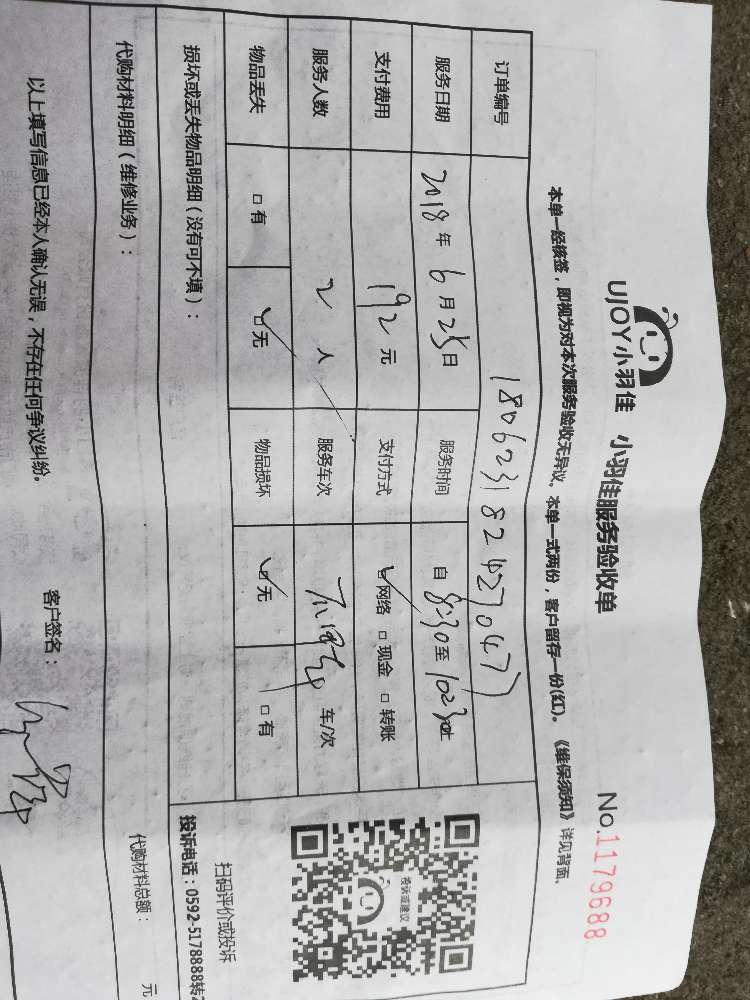 UJOY小羽佳 小羽佳服务验收单
No.1179688
本单一经核签，即视为对本次服务验收无异议。本单一式两份，客户留存一份(红)。《维保须知》详见背面、
订单编号
服务日期 2018年6月25日 服务时间 自8:30至10:30止
支付费用 192元 支付方式 ☑网络 □现金 □转账
服务人数 2人 服务车次 车/次
物品丢失 □有 ☑无 物品损坏 ☑无 □有
投诉或建议
扫码评价或投诉
投诉电话：0592-5178888转
损坏或丢失物品明细（没有可不填）：
代购材料明细（维修业务）：
代购材料总额： 元
以上填写信息已经本人确认无误，不存在任何争议纠纷。 客户签名：